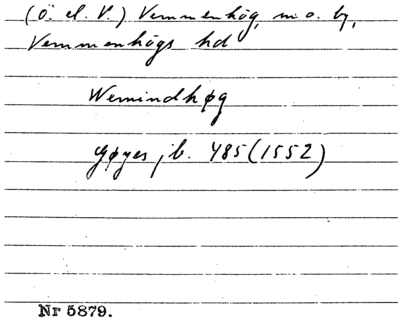 (ö. el. V.) Vemmenhög, m o. by,
Vemmenhögs hd
Wemindhøg
Gøyes jb. 485 (1552)
Nr 5879.